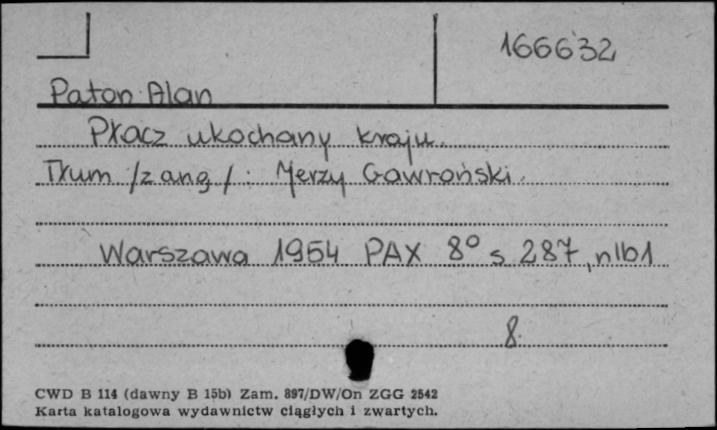 166632
Paton Alan
Płacz ukochany kraju.
Tłum /z ang/: Jerzy Gawroński.
Warszawa 1954 PAX 8° s 287, nlb1
8.
CWD B 114 (dawny B 15b) Zam. 897/DW/On ZGG 2542
Karta katalogowa wydawnictw ciągłych i zwartych.